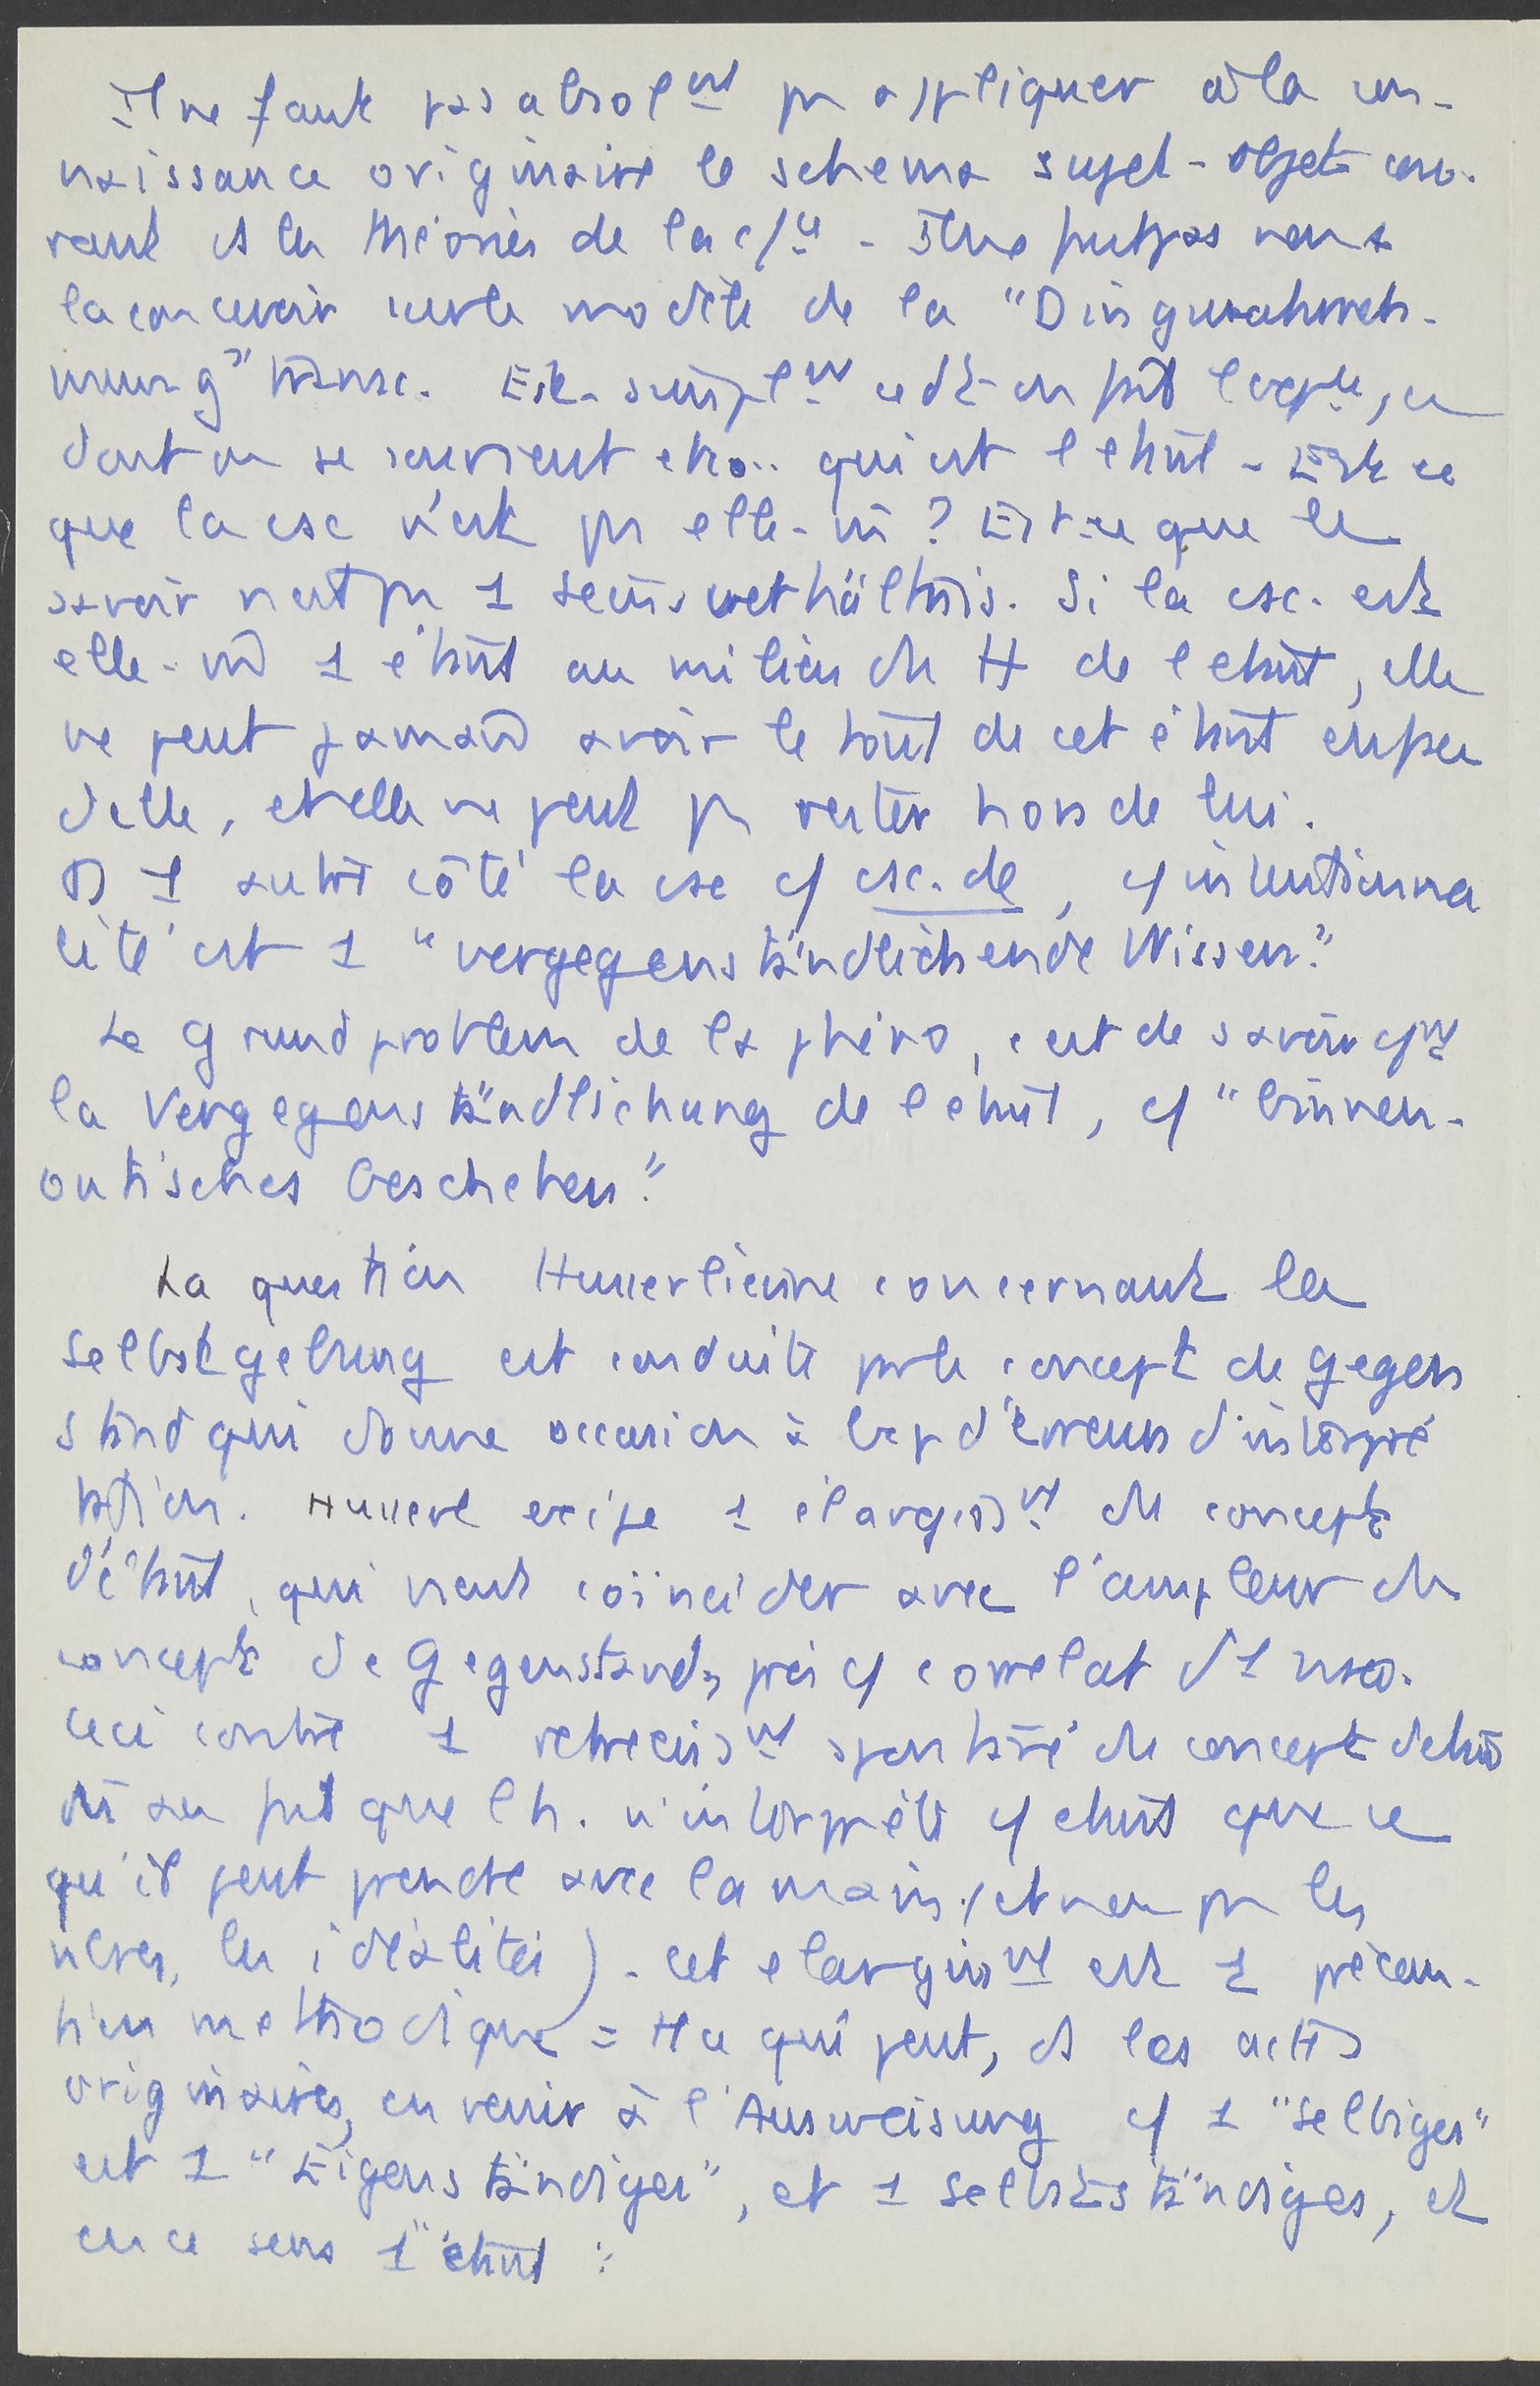 Il ne faut pas absolnt pas appliquer à la con-
naissance originaire le schema sujet-objet cou-
rant ds les théories de la c/ce - Il ne faut pas non +
la concevoir sur le modèle de la "Dingwahrneh-
mung" transc. Est-simplnt ce dt on fait l'expce, ce
dont on se souvient etc.. qui est l'etant - Est ce
que la csc n'est pas elle-m̂ ? Est-ce que le
savoir n'est pas 1 Seinsverhältnis. Si la csc. est
elle-m̂ 1 étant au milieu du tt de l'etant, elle
ne peut jamais avoir le tout de cet étant en face
d'elle, et elle ne peut pas rester hors de lui.
D 1 autre côté la csc c/ csc. de, c/ intentionna
lité est 1 "vergegenständlichende Wissen."
Le Grundproblem de la phéno, c'est de savoir cmt
la Vergegenständlichung de l'étant, c/ "binnen-
ontisches Geschehen."
La question Husserlienne concernant la
Selbstgebung est conduite par le concept de Gegen
stand qui donne occasion à bcp d'erreurs d'interpré
tation. Husserl exige 1 élargisst du concept
d'étant, qui veut coïncider avec l'ampleur du
concept de Gegenstand, pris c/ correlat d'1
Ceci contre 1 retrecisst spontané du concept d'etant
dû au fait que l'h. n'interprète c/ etant que ce
qu'il peut prendre avec la main (et non pas les
les idéalités) - cet elargisst est 1 précau-
tion methodique = tt ce qui peut, ds les actes
originaires, en venir à l'Ausweisung c/ 1 "Selbiges"
est 1 "Eigenständiges", et 1 Selbstständiges, et
en ce sens 1 "étant".